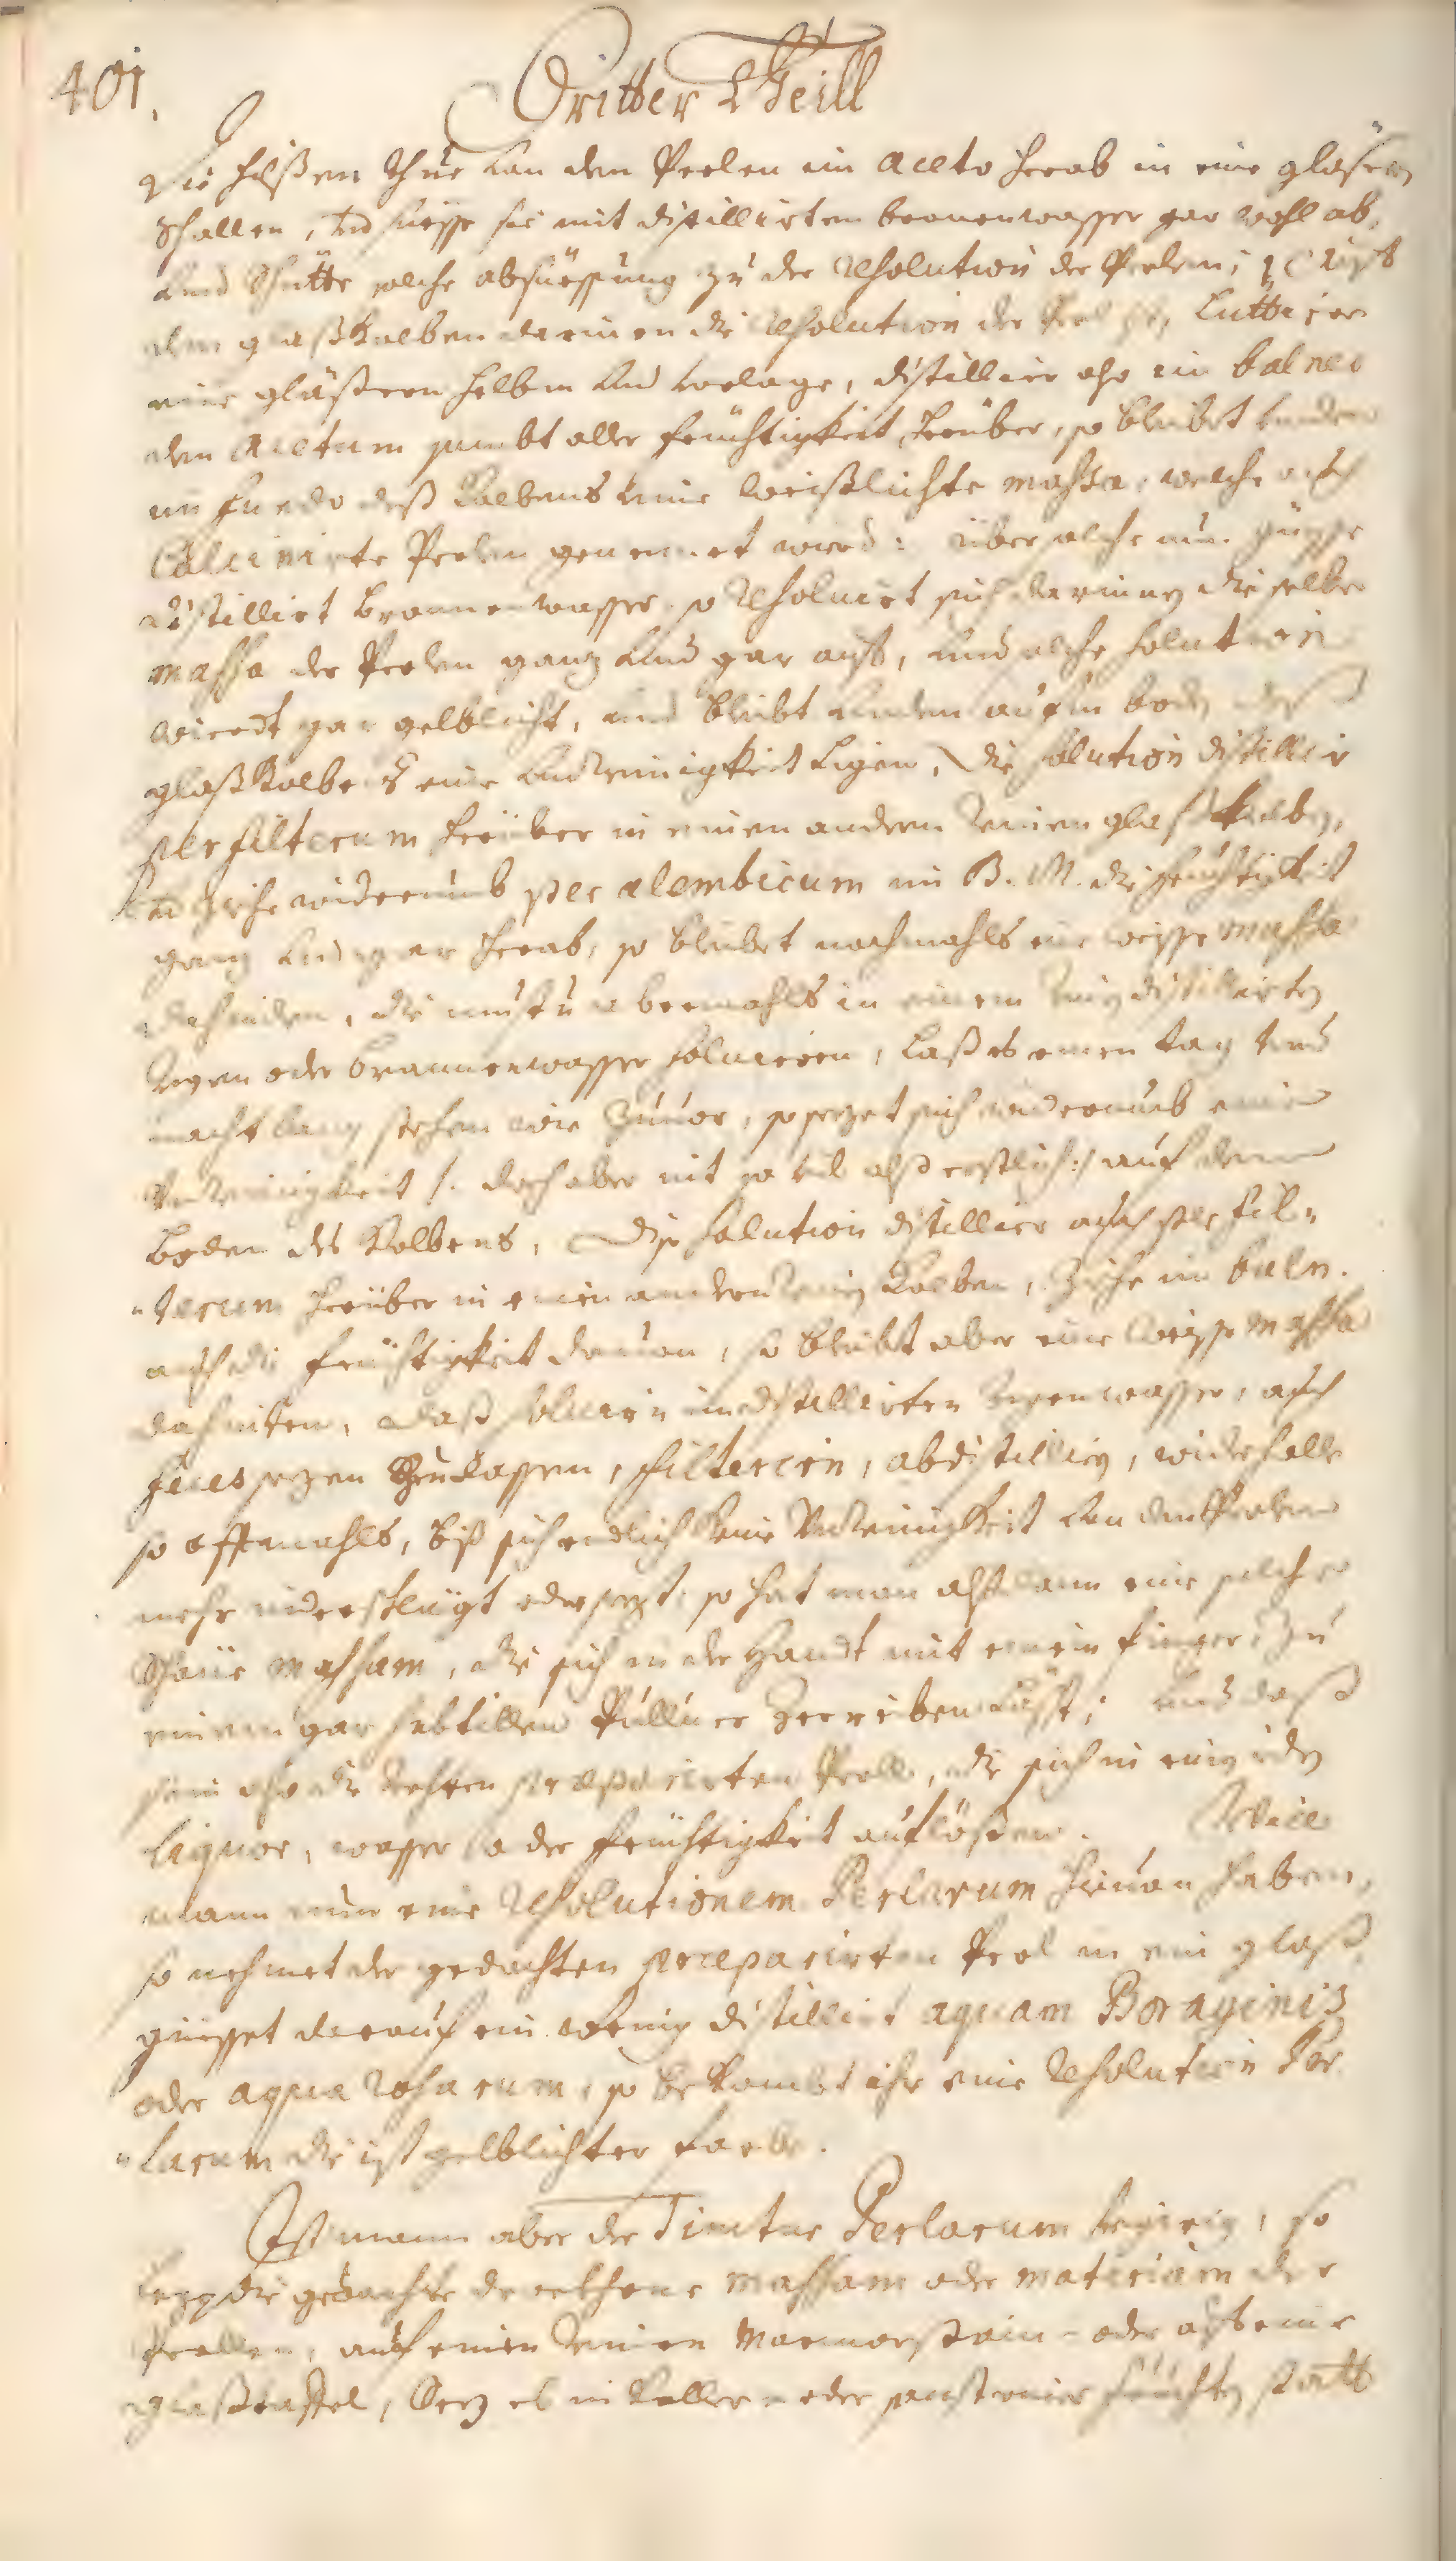 401.
Dritter Theill
Die hülßen thue von den Perlen im aceto herab in eine gläsern
Schallen, und süesse sie mit distillirtem bronnenwasser gar wohl ab,
und schütte solche absüessung zu der Resolution der Perlen;
dem glaßkolben darinnen die Resolution der Perl ist, Luttier
eine gläßeren helbm und vorlage, distillier also in balneo
den acetum sambt aller feüchtigkeit herüber, so bleibet under
in fundo deß Kolbens eine weißlichte massa, welche auch
Calcinirte Perlen genennet wird: über solche nun güesse
distillirt bronnenwasser, so Resolvirt sich darinnen dieselbe
massa der Perlen ganz und gar auff, und solche solution
wierdt gar gelblicht, und bleibt unden auf dem boden deß
glaßkolbens eine unreinigkeit ligen, Die solution distillir
per filterum herüber in einen andern reinen glaßkolben,
und ziehe widerumb per alembicum in B. M. die feüchtigkeit
ganz und gar herab, so bleibet nochmahls eine weisse massa
dahinden, die mustu abermahls in einem rein distillirten
regen oder bronnenwasser solvieren, laß es einen tag und
nacht lang stehen wie zuvor, so sezet sich widerumb eine
Unreinigkeit /: doch aber nit so vil alß erstlich :/ auf dem
Boden des Kolbens, Dise solution distillier auch per fil-
-terum herüber in einen andern rein Kolben, Ziehe in baln.
auch die feüchtigkeit davon, so bleibt aber eine weisse massa
dahinden, daß solvier in distillirten regenwasser, auch
feces sezen zu lassen, filterirn, abdistillirn, widerholle
so offtmahls, biß sich endlich keine Unreinigkeit von den Perlen
mehr niderschlägt oder sezt, so hat man alßdann eine solche
massam, die sich in der Handt mit einem finger zu
einem gar subtillen Pullver zerreiben läßt; und daß
sein also die rechten praeparirten Perlen, die sich in einigeden
liquor, wasser oder feüchtigkeit auflösen. Will
mann nun eine Resolutionem Perlarum hievon haben,
so nehmet der gedachten praeparirten Perl in ein glaß
güesset darauf ein wenig distillirt aquam Boraginis
oder aqua Rosarum, so bekombt ihr eine Resolution Per-
-larum die ist gelblichter farbe.
Ist mann aber der Tinctur Perlarum begierig, so
legg die gedachte massam oder materiam der
Perllen, auf einen reinen Marmorstain oder auf eine
glaßtaffel, Sez es in Keller oder sonst einer feüchten statt